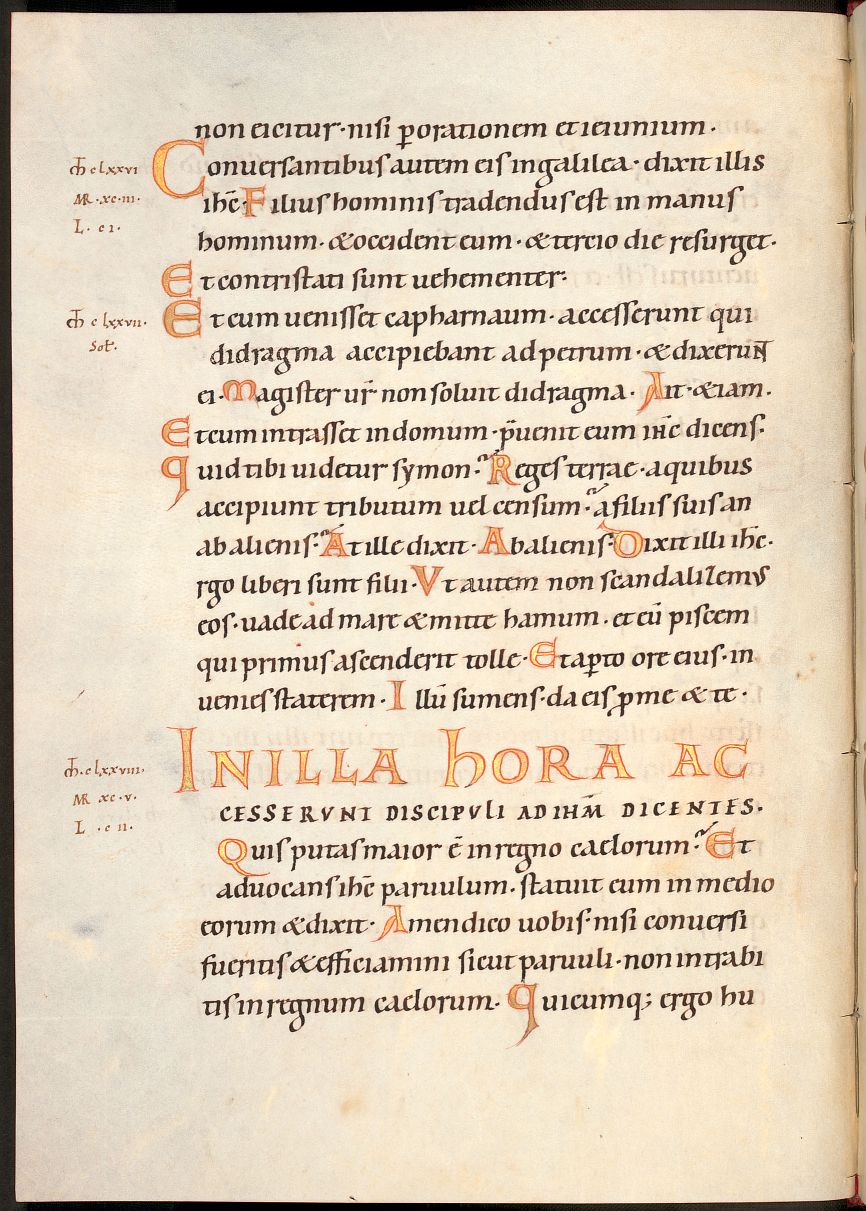 non eicitur · nisi ꝑ orationem et ieiunium ·
Conuersantibus autem eis in galilea · dixit illis
ih̅c · Filius hominis tradendus est in manus
hominum · & occident eum · & tercio die resurget ·
Et contristati sunt uehementer ·
Et cum uenisset capharnaum · accesserunt qui
didragma accipiebant ad petrum · & dixerunt
ei · Magister ur̅ non soluit didragma · Ait · &iam ·
Et cum intrasset in domum · p̅uenit eum ih̅c dicens ·
quid tibi uidetur symon · Reges terrae · a quibus
accipiunt tributum uel censum · a filiis suis an
ab alienis · At ille dixit · Ab alienis · Dixit illi ih̅c ·
rgo liberi sunt filii · Vt autem non scandalizemus
eos · uade ad mare & mitte hamum · et eū piscem
qui primus ascenderit tolle · Et aꝑto ore eius · in
uenies staterem · Illū sumens · da eis ꝓ me & te ·
IN ILLA hORA AC
CESSERVNT DISCIPVLI AD IHM̅ DICENTES ·
Quis putas maior ē in regno caelorum · Et
aduocans ih̅c paruulum · statuit eum in medio
eorum & dixit · Amen dico uobis · nisi conuersi
fueritis & efficiamini sicut paruuli · non intrabi
tis in regnum caelorum · quicumq; ergo hu
M̅ c lxxvi
MR · xc · iii ·
L · ci ·
M̅ c lxxvii ·
Sol̅ ·
M̅ · c lxxviii ·
MR xc · v ·
L · c ii ·